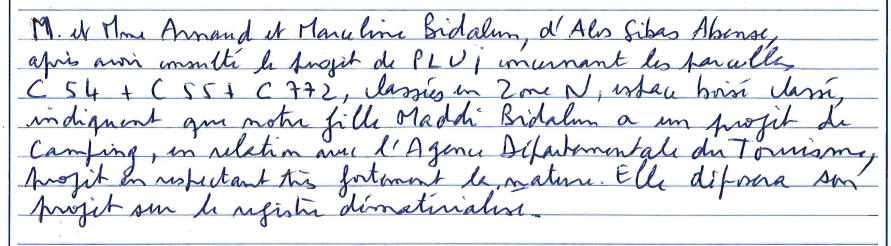 M. et Mme Arnaud et Marceline Bidalun, d'Alos Sibas Abense,
après avoir consulté le projet de PLUi concernant les parcelles
C 54 + C 55 + C 772, classées en Zone N, espace boisé classé,
indiquent que notre fille Maddi Bidalun a un projet de
Camping, en relation avec l'Agence Départementale du Tourisme,
projet en respectant très fortement la nature. Elle diposera son
projet sur le registre dématérialisé.